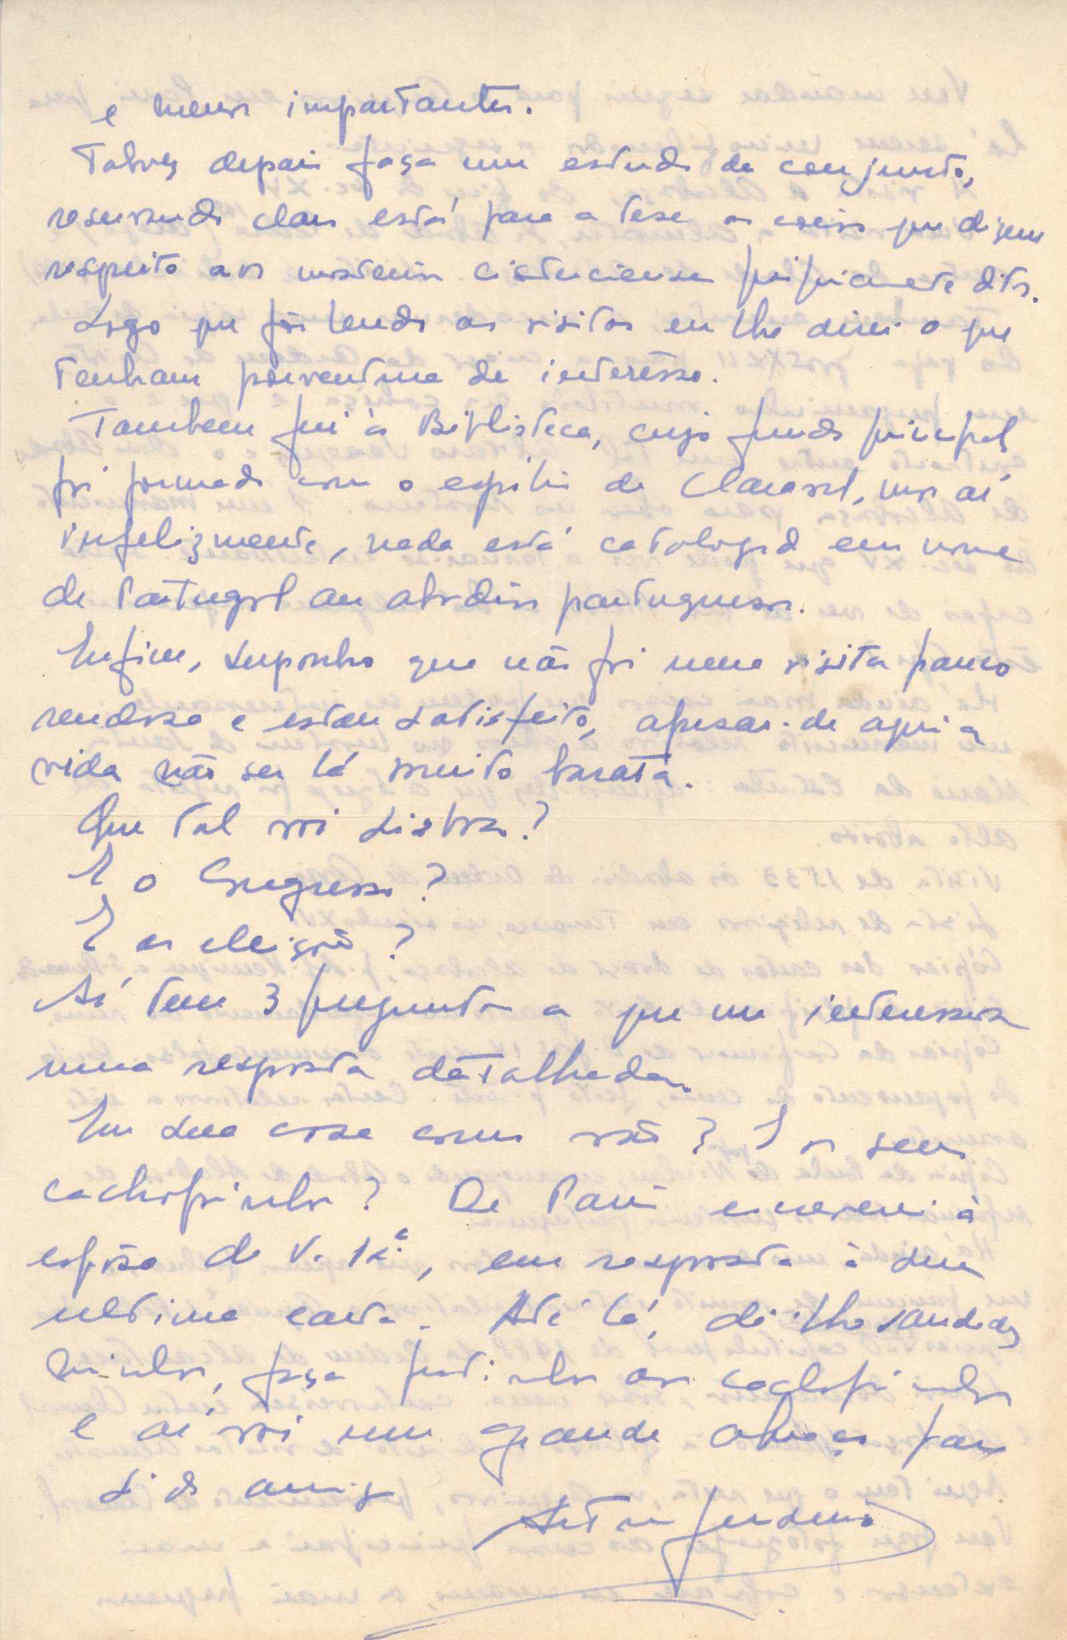 e menos importantes.
Talvez depois faça um estudo de conjunto,
reservando claro está para a tese as coisas que dizem
respeito aos mosteiros cistercienses propriamente ditos.
Logo que fôr lendo as visitas eu lhe direi o que
tenham porventura de interêsse.
Tambem fui à Biblioteca, cujo fundo principal
foi formado com o espólio de Claraval, mas aí
infelizmente, nada está catalogado em nome
de Portugal ou abadias portuguesas.
Enfim, suponho que não foi uma visita pouco
rendosa e estou satisfeito, apesar de aqui a
vida não ser lá muito barata.
Que tal vai Lisboa?
E o Congresso?
E as eleições?
Aí tem 3 preguntas a que me interessava
uma resposta detalhada.
Em sua casa como vão? E os seus
cachopinhos? De Paris escreverei à
espôsa de V. Ex.ª, em resposta à sua
ultima carta. Até lá, dê-lhe saudades
minhas, faça festinhas aos cachopinhos
e aí vai um grande abraço para
si do amigo
Artur